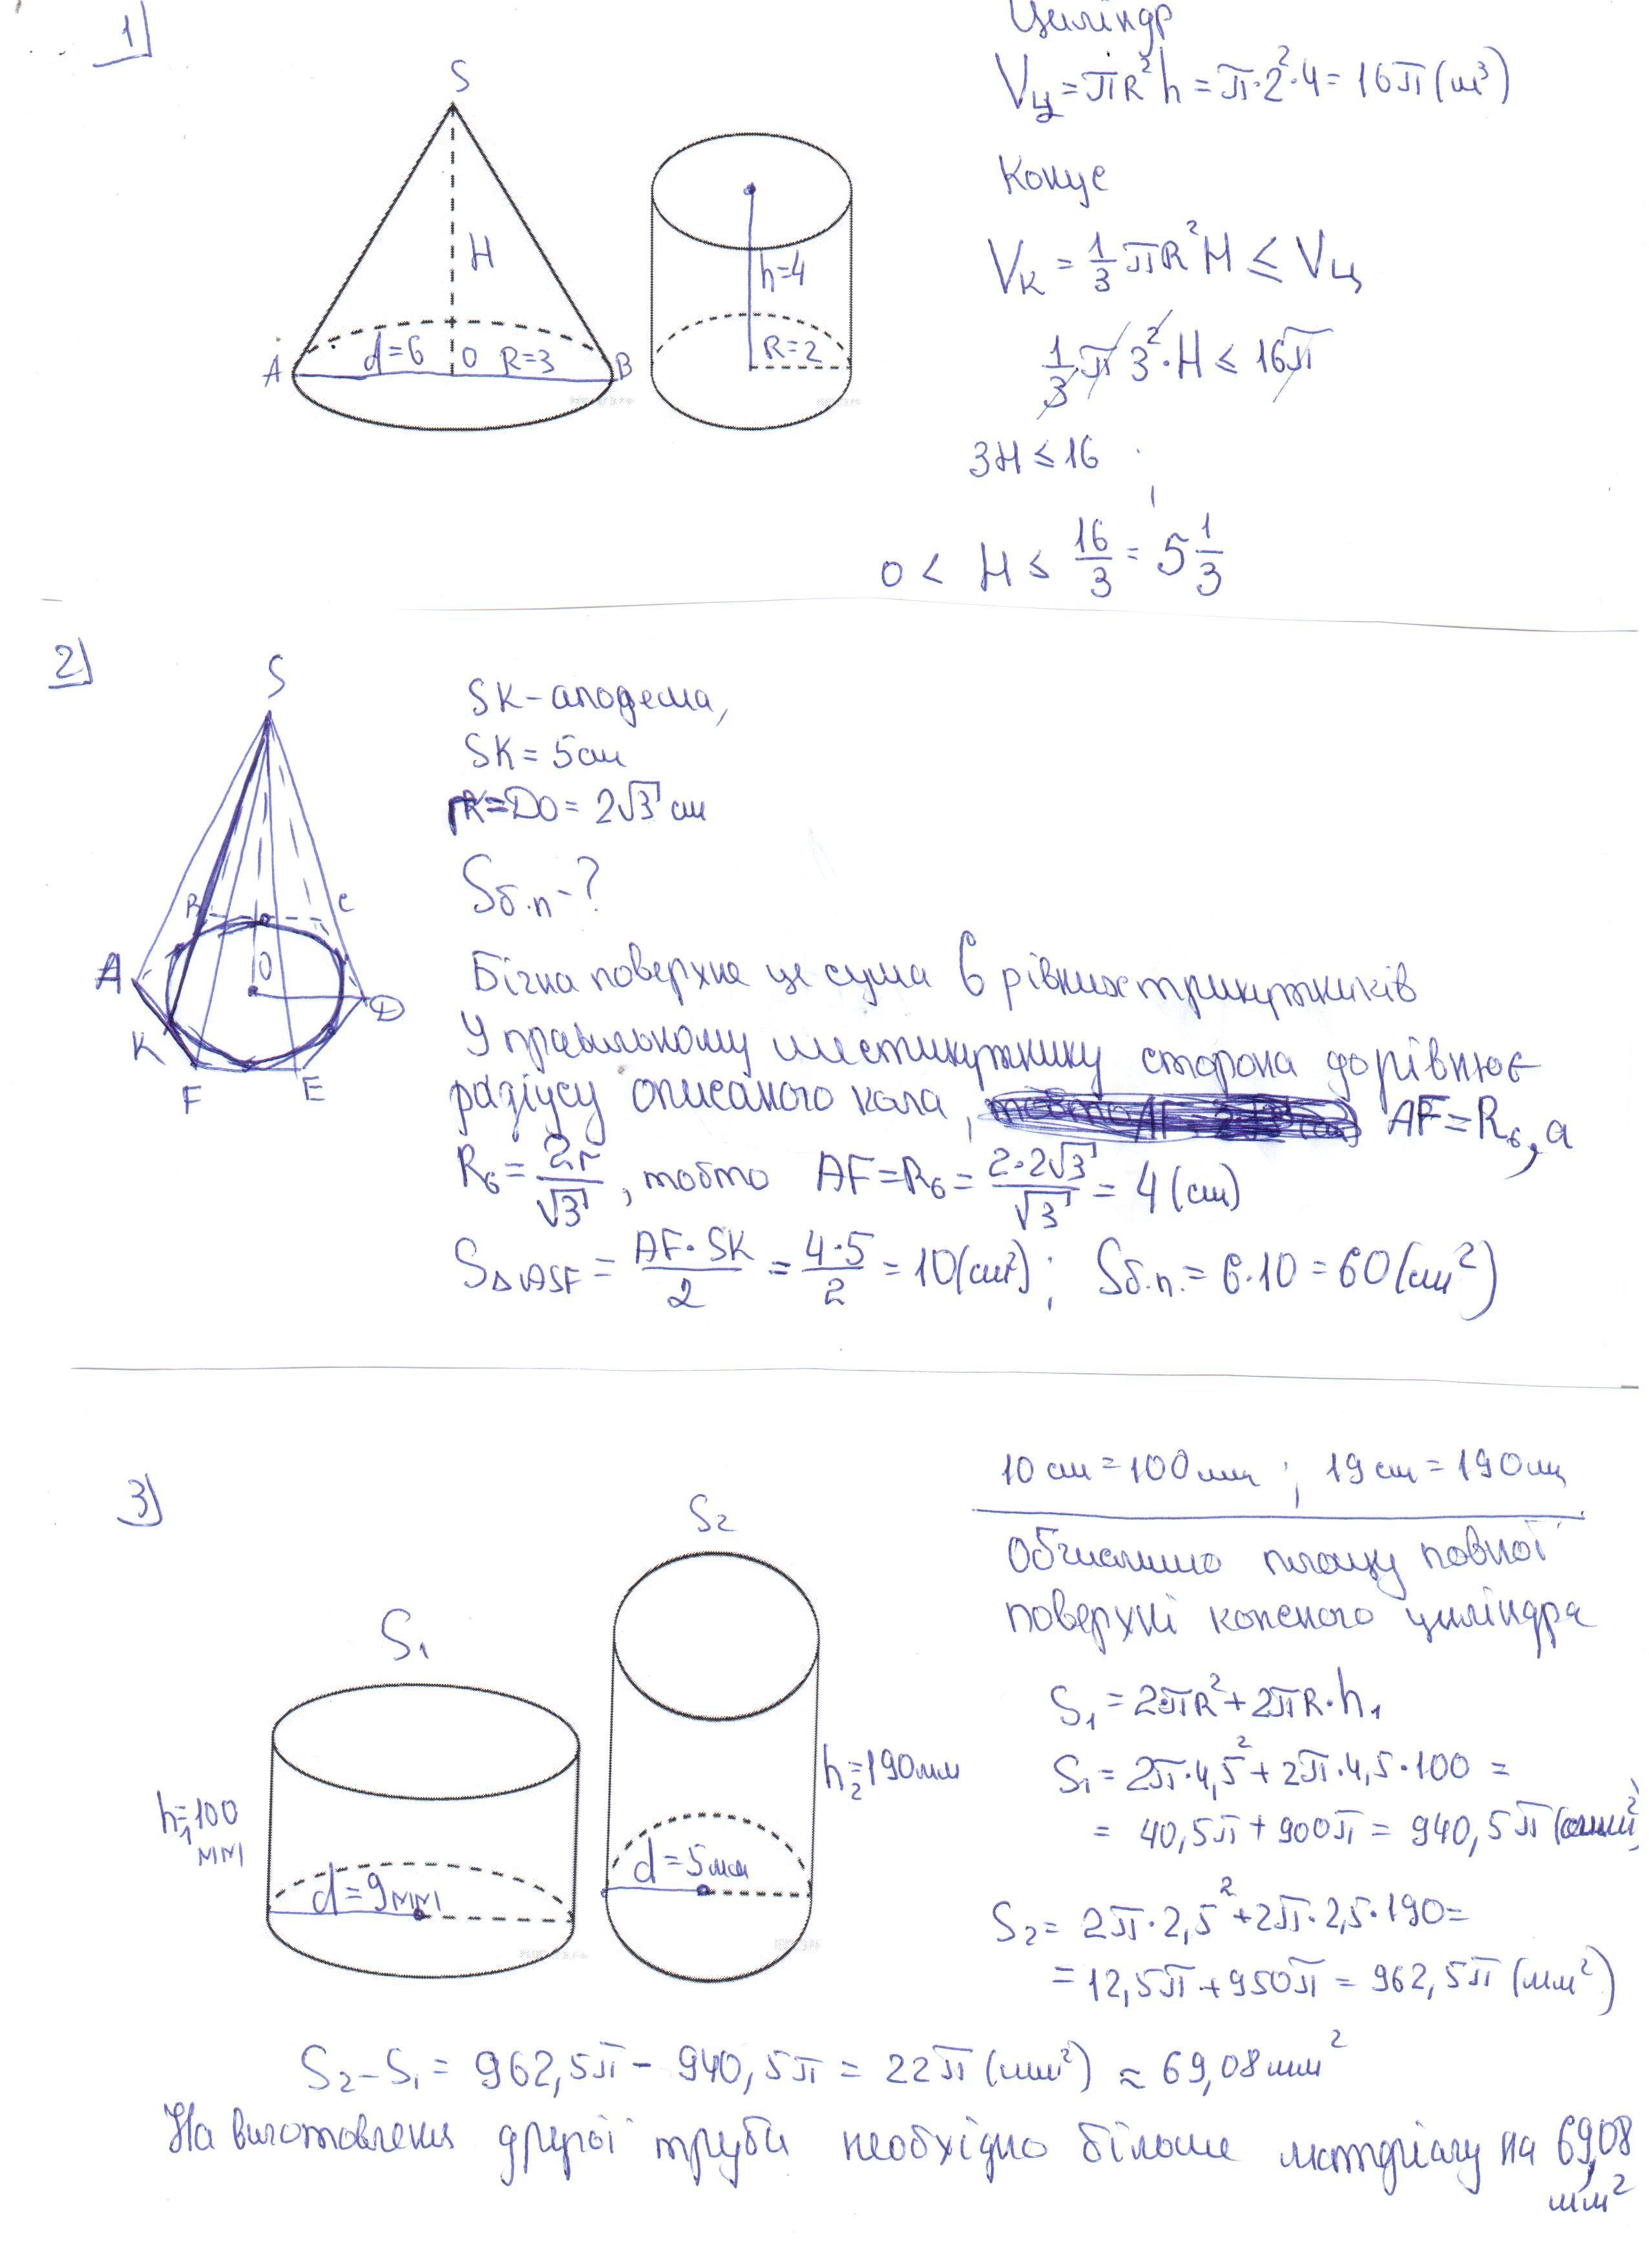 1)
Циліндр
Vц = πR²h = π·2²·4 = 16π (м³)
Конус
Vк = 1/3 πR²H ≤ Vц
1/3 π 3²·H ≤ 16π
3H ≤ 16
0 < H ≤ 16/3 = 5 1/3
S
H
A
d=6
O
R=3
B
h=4
R=2
2)
S
B
C
A
O
D
K
F
E
SK - апофема,
SK = 5см
r = DO = 2√3 см
Sб.п - ?
Бічна поверхня це сума 6 рівних трикутників
У правильному шестикутнику сторона дорівнює
радіусу описаного кола, AF = R₆, а
R₆ = 2r/√3, тобто AF = R₆ = 2·2√3/√3 = 4 (см)
S△ASF = AF·SK/2 = 4·5/2 = 10(см²); Sб.п. = 6·10 = 60(см²)
3)
10 см = 100мм; 19 см = 190мм
Обчислимо площу повної
поверхні кожного циліндра
S₁ = 2πR² + 2πR·h₁
S₁ = 2π·4,5² + 2π·4,5·100 =
= 40,5π + 900π = 940,5π
S₂ = 2π·2,5² + 2π·2,5·190 =
= 12,5π + 950π = 962,5π (мм²)
S₁
h₁=100
мм
d=9мм
S₂
h₂=190мм
d=5мм
S₂ - S₁ = 962,5π - 940,5π = 22π (мм²) ≈ 69,08 мм²
На виготовлення другої труби необхідно більше матеріалу на 69,08
мм²